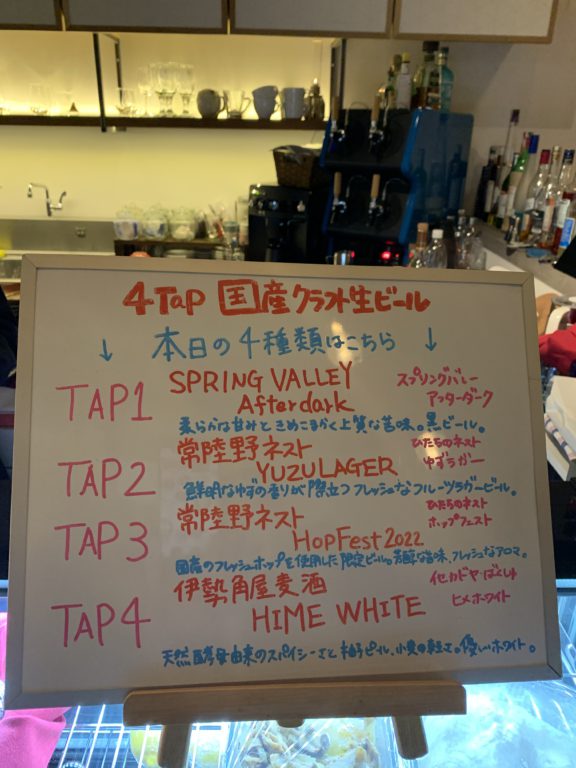 4TAP 国産クラフト生ビール
↓ 本日の4種類はこちら ↓
TAP1 SPRING VALLEY スプリングバレー
Afterdark アフターダーク
柔らかな甘みときめこまかく上質な苦味。黒ビール。
常陸野ネスト ひたちのネスト
TAP2 YUZULAGER ゆずラガー
鮮明なゆずの香りが際立つフレッシュなフルーツラガービール。
常陸野ネスト ひたちのネスト
TAP3 HopFest2022 ホップフェスト
国産のフレッシュホップを使用した限定ビール。芳醇な旨味、フレッシュなアロマ。
伊勢角屋麦酒 イセカドヤ・ばくしゅ
TAP4 HIME WHITE ヒメホワイト
天然酵母由来のスパイシーさと柚子ピール、小麦の軽さ。優しいホワイト。